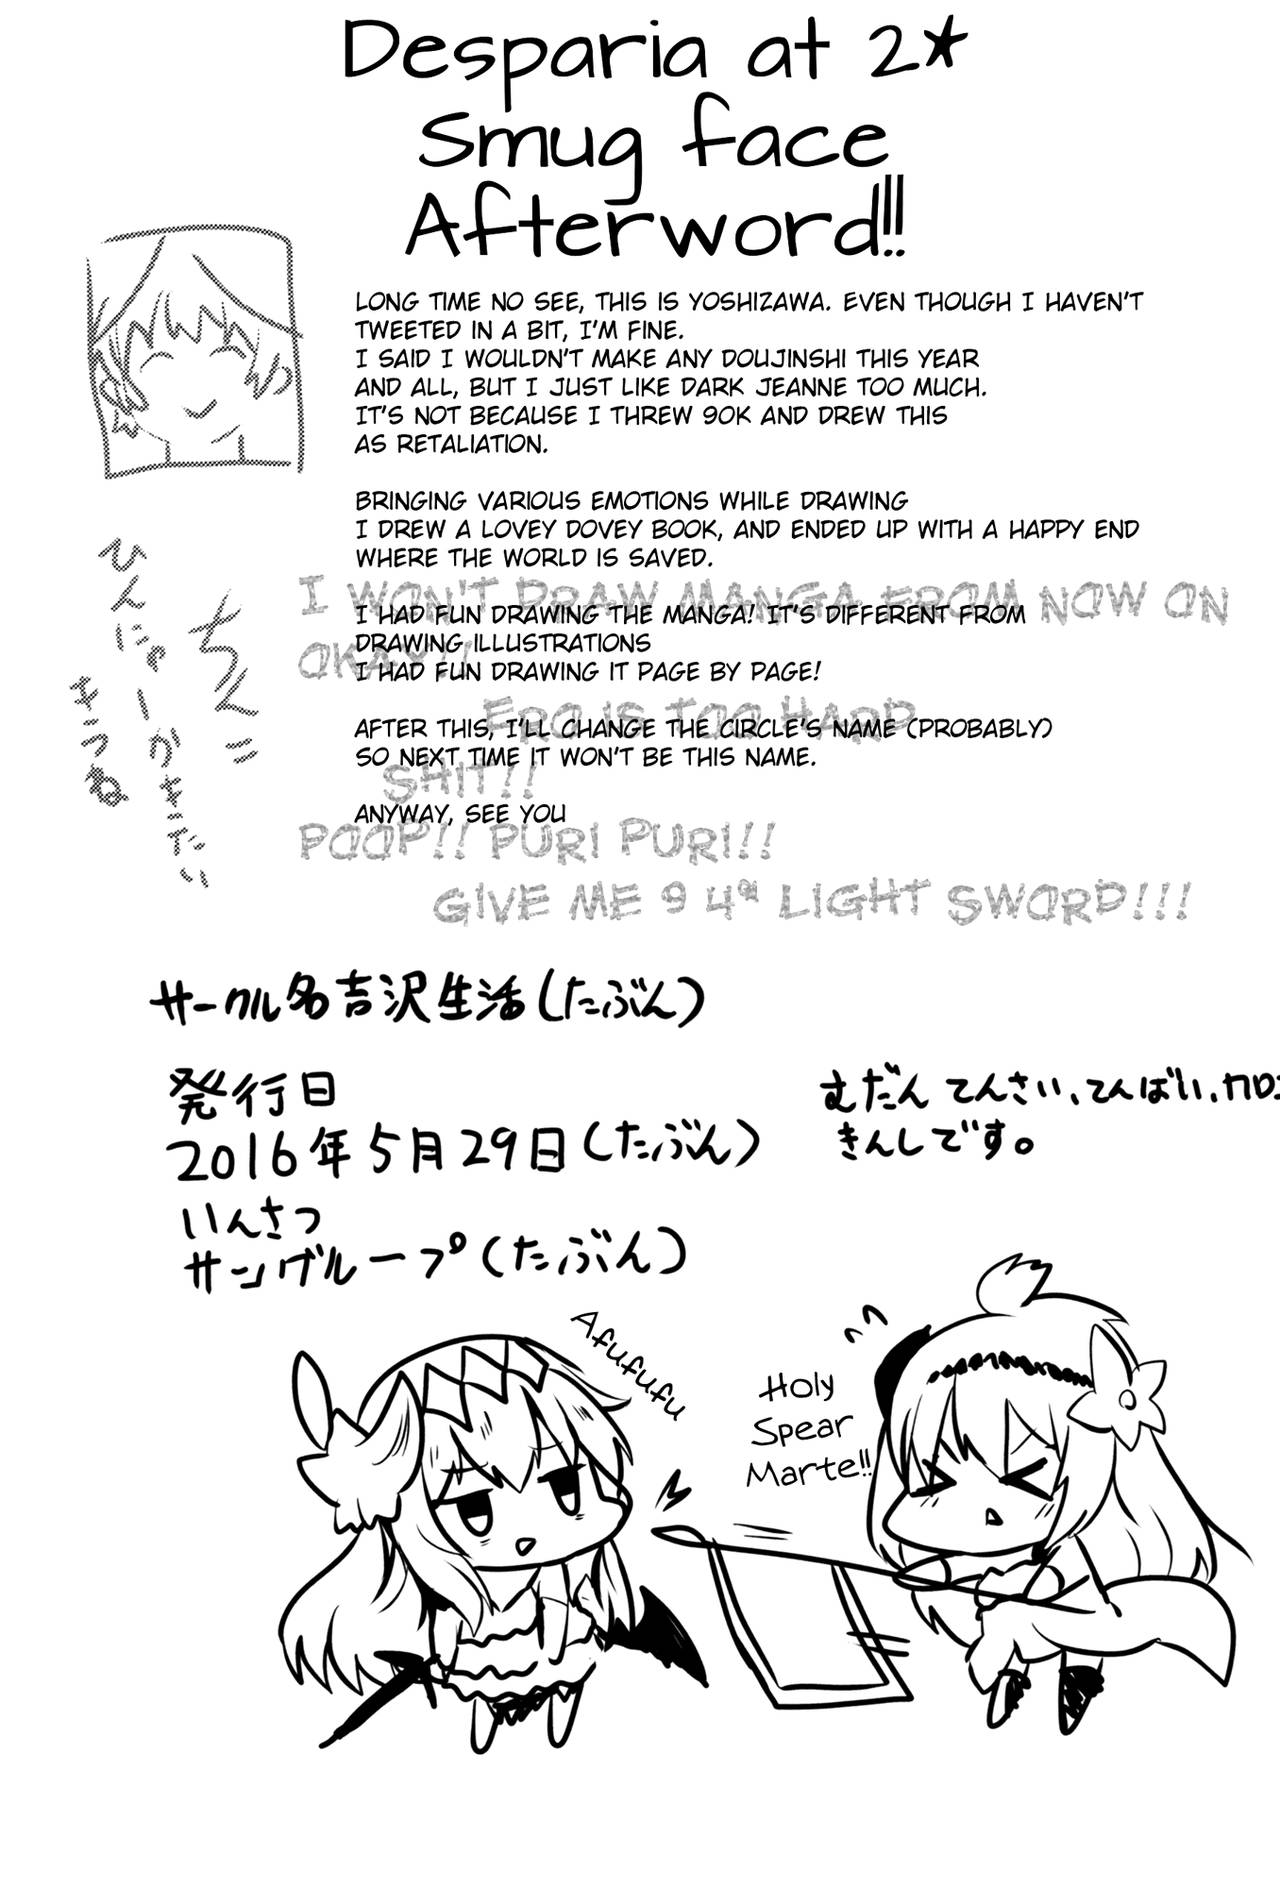 Desparia at 2★
Smug face
Afterword!!
LONG TIME NO SEE, THIS IS YOSHIZAWA. EVEN THOUGH I HAVEN'T
TWEETED IN A BIT, I'M FINE.
I SAID I WOULDN'T MAKE ANY DOUJINSHI THIS YEAR
AND ALL, BUT I JUST LIKE DARK JEANNE TOO MUCH.
IT'S NOT BECAUSE I THREW 90K AND DREW THIS
AS RETALIATION.
BRINGING VARIOUS EMOTIONS WHILE DRAWING
I DREW A LOVEY DOVEY BOOK, AND ENDED UP WITH A HAPPY END
WHERE THE WORLD IS SAVED.
I WON'T DRAW MANGA FROM NOW ON
I HAD FUN DRAWING THE MANGA! IT'S DIFFERENT FROM
DRAWING ILLUSTRATIONS
OKAY!!
I HAD FUN DRAWING IT PAGE BY PAGE!
ERO IS TOO HARD
AFTER THIS, I'LL CHANGE THE CIRCLE'S NAME (PROBABLY)
SO NEXT TIME IT WON'T BE THIS NAME.
SHIT!!
ANYWAY, SEE YOU
POOP!! PURI PURI!!
GIVE ME 9 4★ LIGHT SWORD!!!
ちんこ
ひんにゃーかきたい
きつね
サークル名吉沢生活(たぶん)
発行日
2016年5月29日(たぶん)
いんさつ
サングループ(たぶん)
むだん てんさい、てんばい、
きんしです。
Afufufufu
Holy
Spear
Marte!!